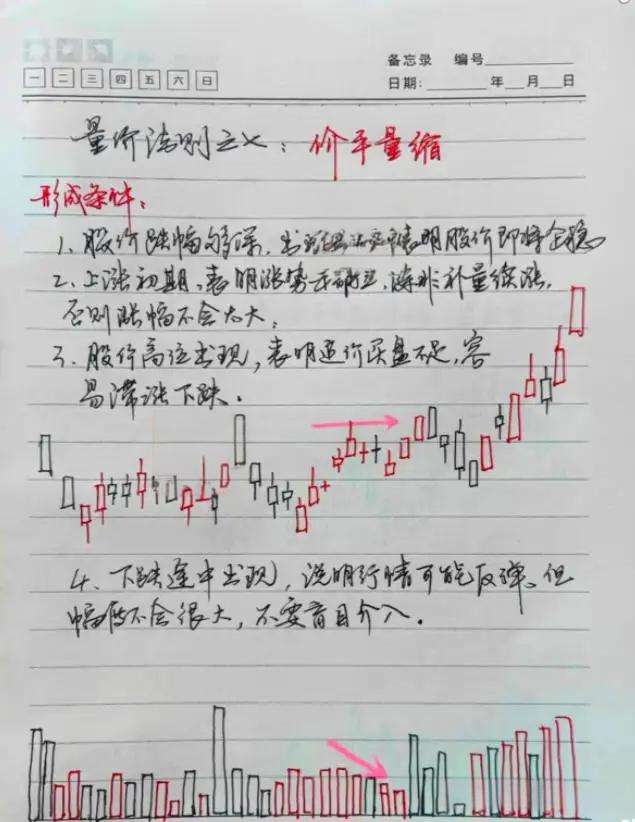 备忘录 编号
一 二 三 四 五 六 日
日期: 年 月 日
量价法则之七：价平量缩
形成条件：
1、股价跌幅够深，出现 表明股价即将企稳
2、上涨初期，表明涨势 ，除非补量续涨，
否则涨幅不会太大；
3、股价高位出现，表明追价买盘不足，容
易滞涨下跌．
4、下跌途中出现，说明行情可能反弹，但
幅度不会很大，不要盲目介入．